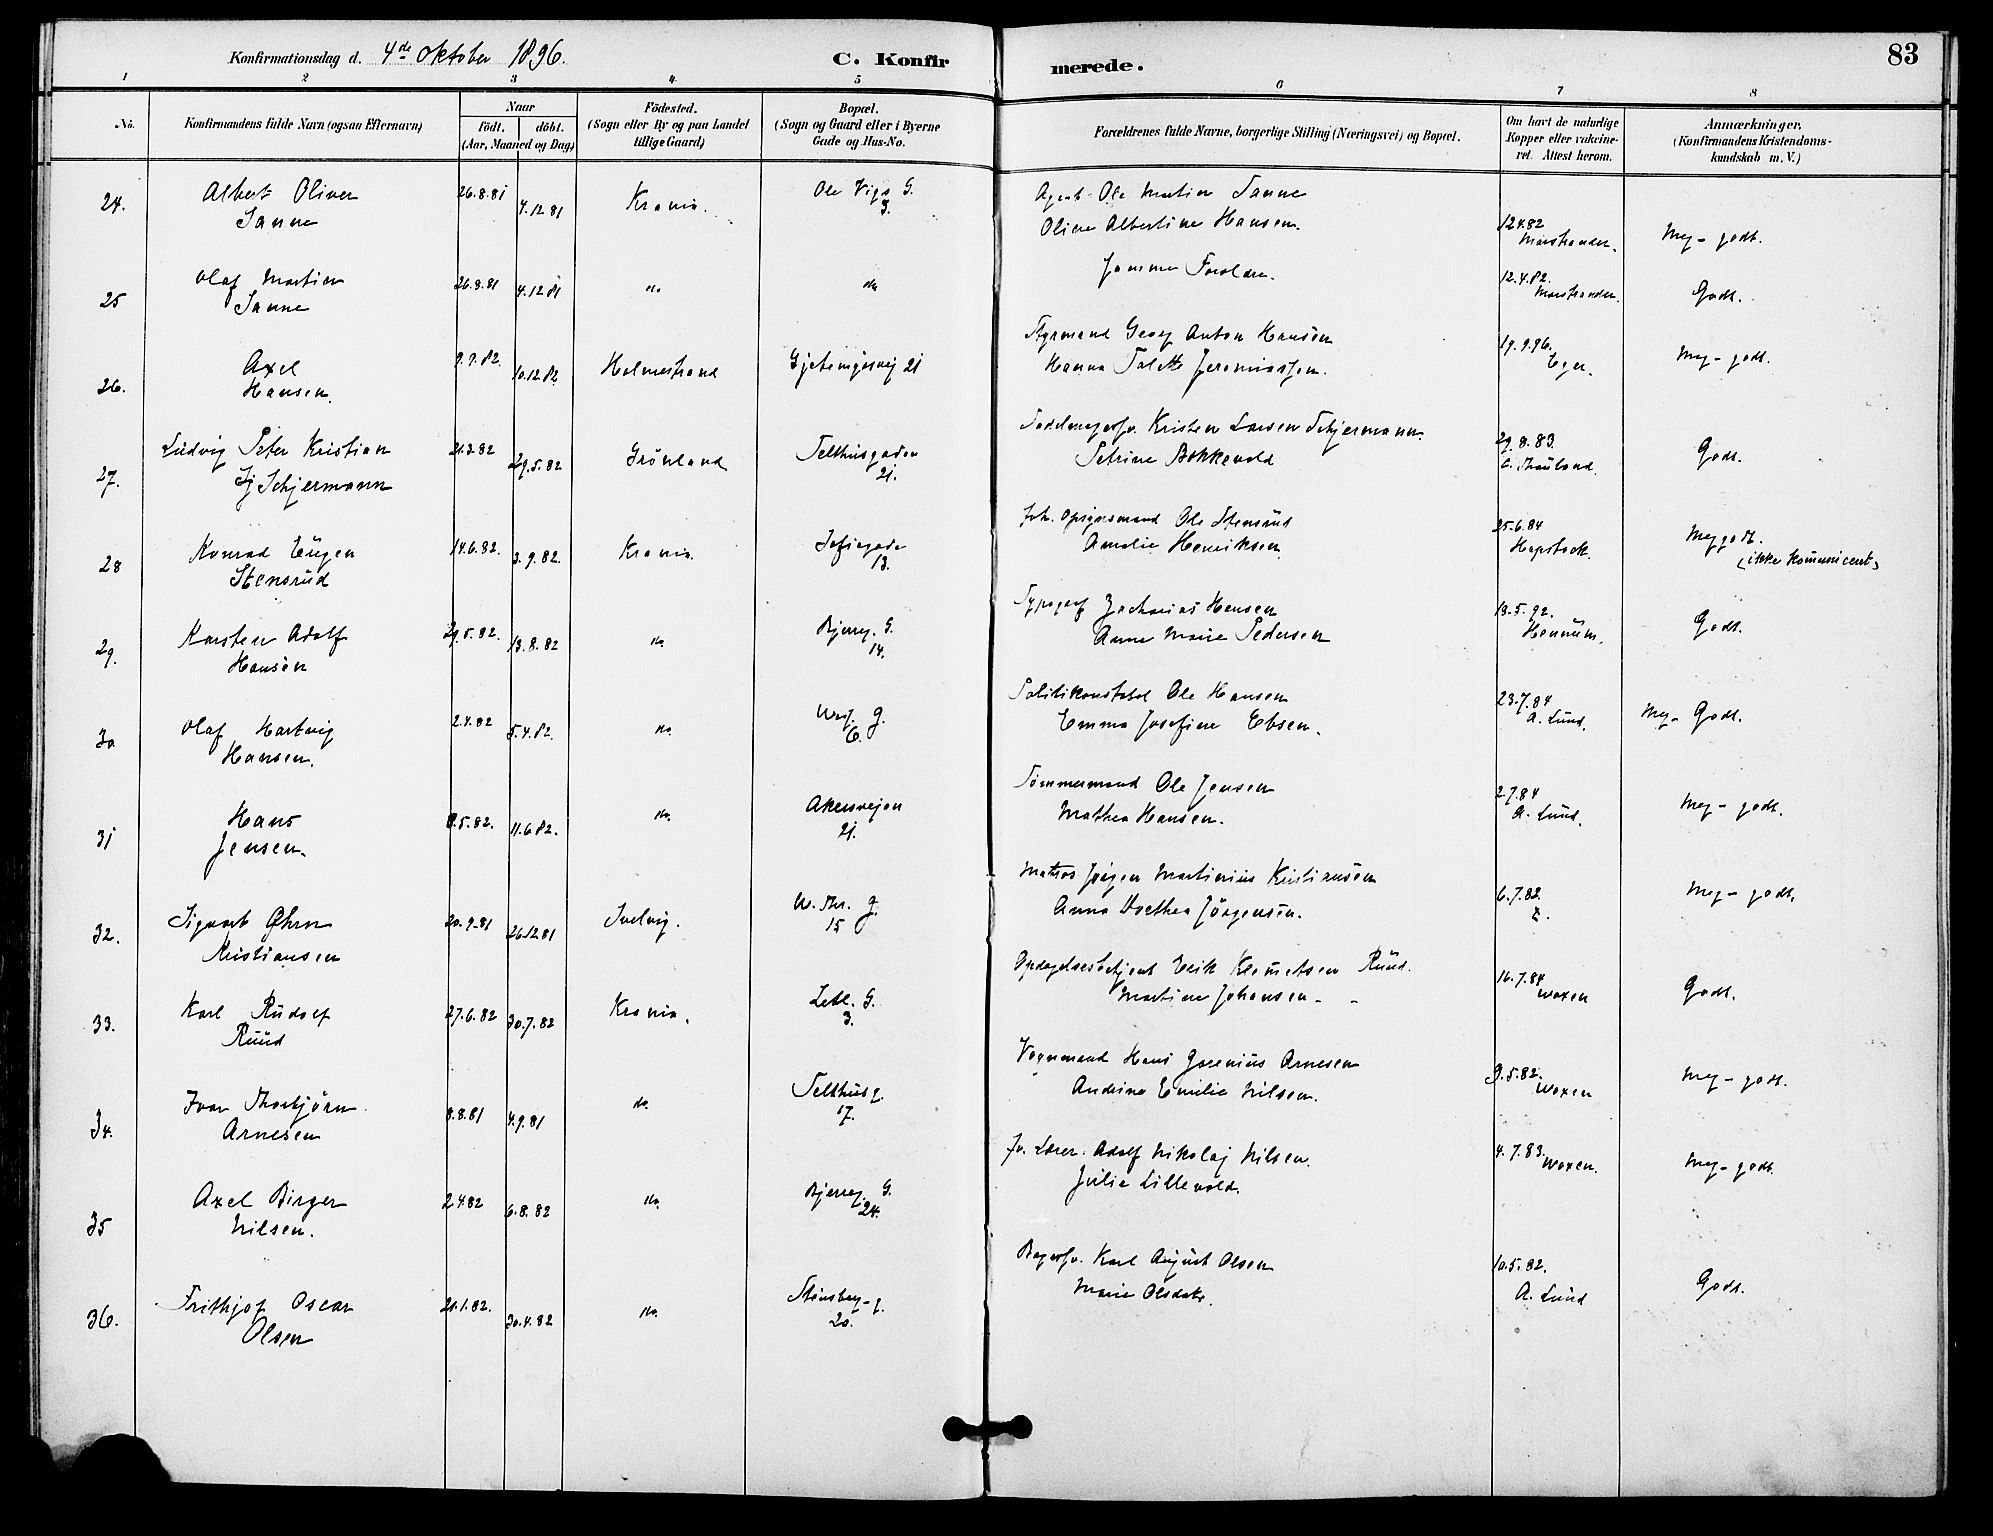 Konfirmationsdag d. 4de Oktober 1896.
C. Konfirmerede.
83
1 2 3 4 5 6 7 8
No.
Konfirmandens fulde Navn (ogsaa Efternavn)
Naar
födt. döbt.
(Aar, Maaned og Dag)
Födested.
(Sogn eller By og paa Landet
tillige Gaard)
Bopæl.
(Sogn og Gaard eller i Byerne
Gade og Hus-No.
Forældrenes fulde Navne, borgerlige Stilling (Næringsvei) og Bopæl.
Om havt de naturlige
Kopper eller vakcine-
ret. Attest herom.
Anmærkninger,
(Konfirmandens Kristendoms-
kundskab m. V.)
24. Albert Oliver Sanne 26.8.81 4.12 81 Krania. Ole Vigs G. 3. Agent Ole Martin Sanne
Oline Albertine Hansen. 12.4.82 Marstrander. Meg- godt.
25 Olaf Martin Sanne 26.8.81 4.12 81 do do Samme Foreldre. 12.4.82. Marstrander. Godt.
26. Axel Hansen. 9.9.82. 10.12 82 Holmestrand Gjetemyrsvej 21 Styrmand Georg Anton Hansen
Hanna Talette Jeremiassen. 19.9.96. Eger. Meg- godt.
27. Ludvig Peter Kristian Schjermann 21.3.82 29.5.82 Grönland Telthusgaden 21. Sadelmagersv. Kristen Larsen Schjermann.
Petrine Bakkevold 29.8.83. Godt.
28 Konrad Eugen Stensrud 14.6.82. 3.9.82. Krania. Sofiegade 13. Ole Stensrud
Amalie Henriksen. 25.6.84 Meg godt.
(ikke kommunicent)
29. Karsten Adolf Hansen 29.5.82. 13.8.82 do. Bjerreg. G. 14. Typograf Zacharias Hansen
Anne Marie Pedersen 13.5.92. Hennum. Godt.
30 Olaf Hartvig Hansen. 2.4.82 5.4.82. do. G. 6. Politikonstabel Ole Hansen
Emma Josefine Ebsen. 23.7.84 A. Lund. Meg- Godt.
31 Hans Jensen. 8.5.82. 11.6.82. do. Akersvejen 21. Tömmermand Ole Jensen
Mathea Hansen. 2.7.84 A. Lund. Meg- godt.
32. Sigvart Kristiansen 20.9.81 26.12.81 Svelvig. 15 Matros Jörgen Martinius Kristiansen
Anna Dorthea Jörgensen. 6.7.82. Meg- godt.
33. Karl Rudolf Ruud 27.6.82 30.7.82 Krania. G. 3. Opdagelsesbetjent Erik Klemetsen Ruud.
Martine Johansen - - 16.7.84 Woxen Godt.
34. Ivar Thorbjörn Arnesen 8.8.81 4.9.81 do. Telthusg. 17. Vognmand Hans Arnesen
Andrine Emilie Nilsen. 9.5.82. Woxen Meg- godt.
35 Axel Birger Nilsen. 2.4.82 6.8.82 do. Bjerreg. G. 24. Adolf Nikolaj Nilsen.
Julie Lillevold. 4.7.83. Woxen. Meg- godt.
36. Frithjof Oscar Olsen 21.1.82. 30.4.82 do. Stensberg-g. 20. Bagersv. Karl August Olsen
Marie Olsdatr. 10.5.82. A. Lund Godt.